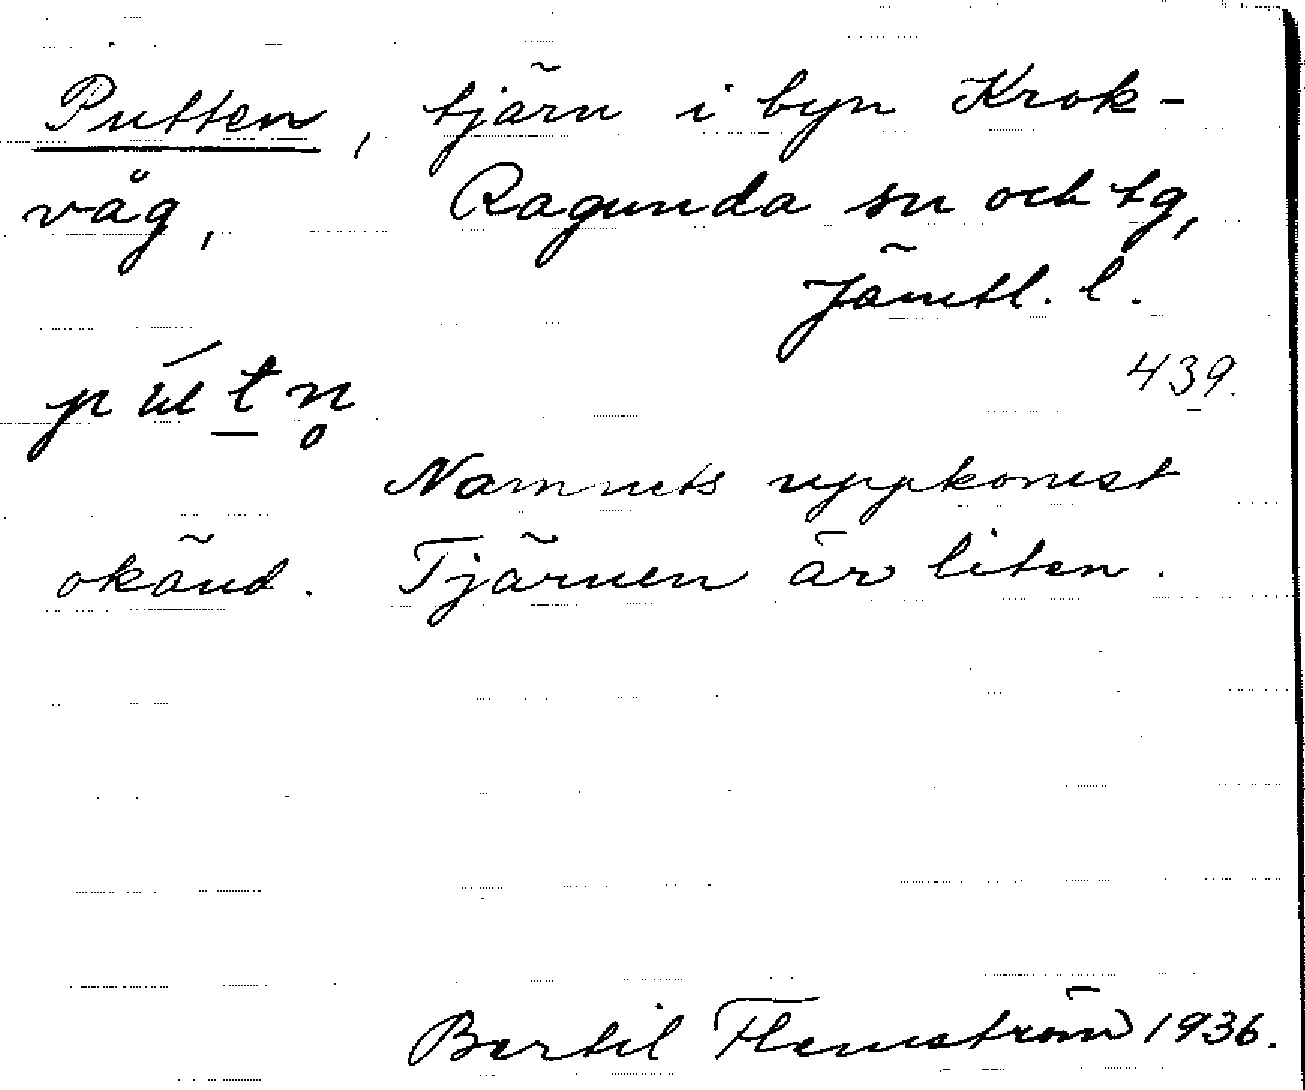 Putten, tjärn i byn Krok-
våg, Ragunda sn och tg,
Jämtl. l.
439.
Namnets uppkomst
okänd. Tjärnen är liten.
Bertil Flemström 1936.